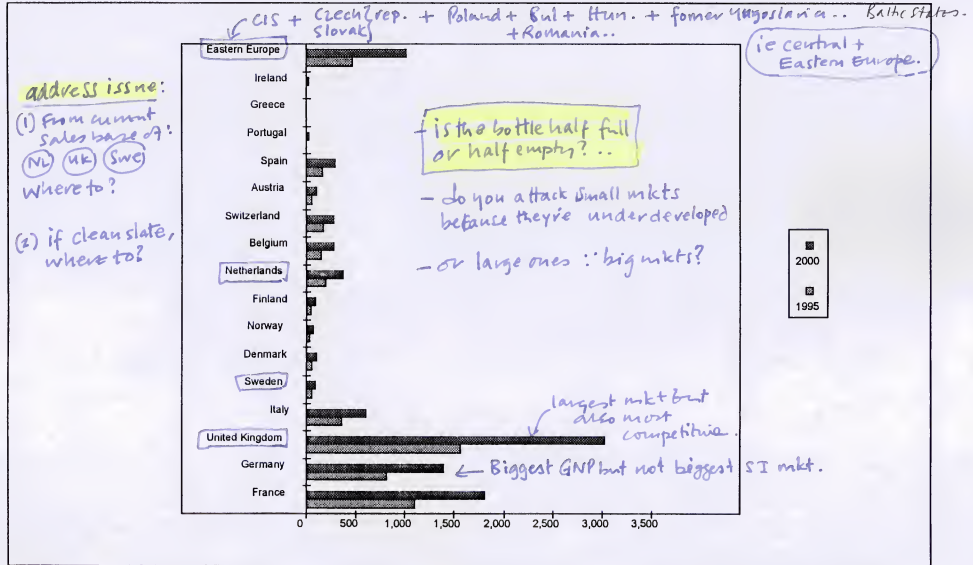 CIS + Czech} rep. + Poland + Bul + Hun. + fomer Yugoslavia .. Baltic States.
Slovak}
+Romania..
ie central +
Eastern Europe.
address issue:
(1) From current
sales base of:
NL UK Swe
where to?
(2) if clean slate,
where to?
- is the bottle half full
or half empty? ..
- do you attack small mkts
because they're underdeveloped
- or large ones ∵ big mkts?
largest mkt but
also most
competitive.
← Biggest GNP but not biggest SI mkt.
Eastern Europe
Ireland
Greece
Portugal
Spain
Austria
Switzerland
Belgium
Netherlands
Finland
Norway
Denmark
Sweden
Italy
United Kingdom
Germany
France
0 500 1,000 1,500 2,000 2,500 3,000 3,500
2000
1995